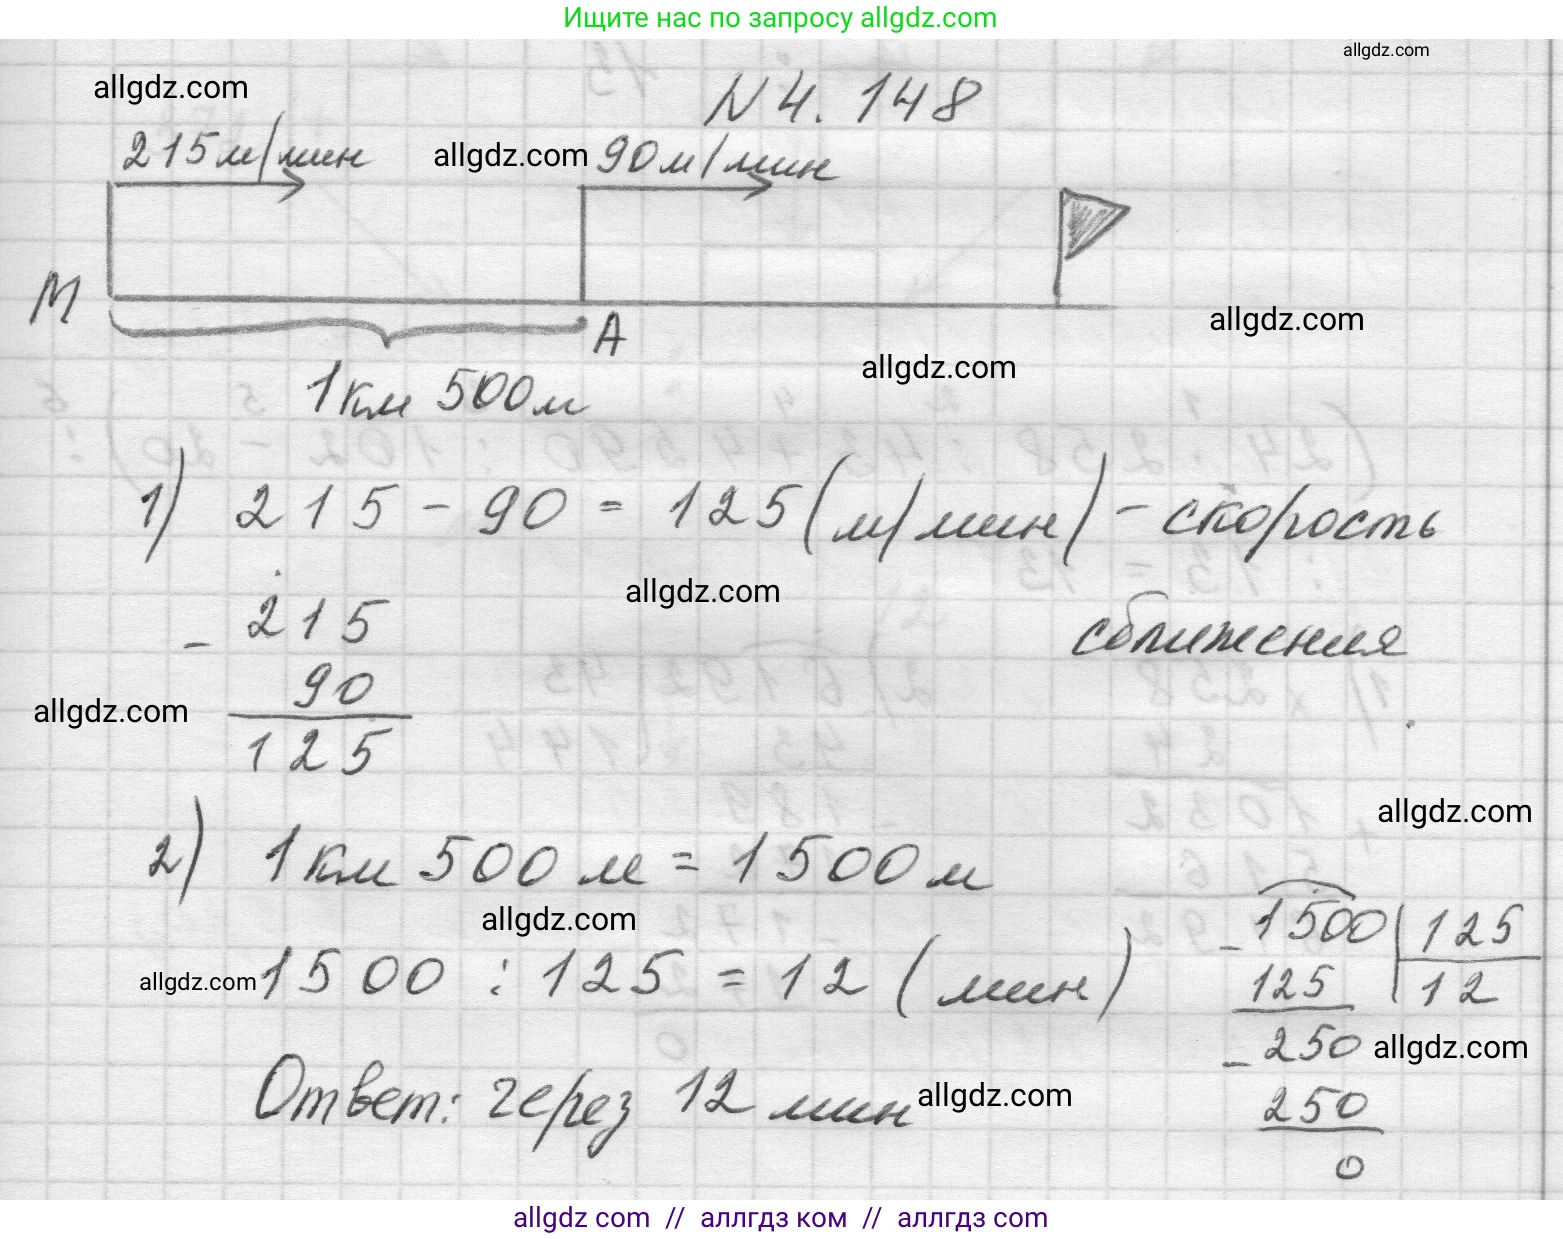 Ищите нас по запросу allgdz.com
allgdz.com
allgdz.com
N4.148
215м/мин allgdz.com 90м/мин
M
A
allgdz.com
allgdz.com
1км 500м
1) 215 - 90 = 125 (м/мин) - скорость
сближения
allgdz.com
- 215
90
125
allgdz.com
allgdz.com
2) 1км 500м = 1500м
allgdz.com
allgdz.com 1500 : 125 = 12 (мин)
- 1500 125
125 12
- 250 allgdz.com
250
0
Ответ: через 12 мин allgdz.com
allgdz com // аллгдз ком // аллгдз com